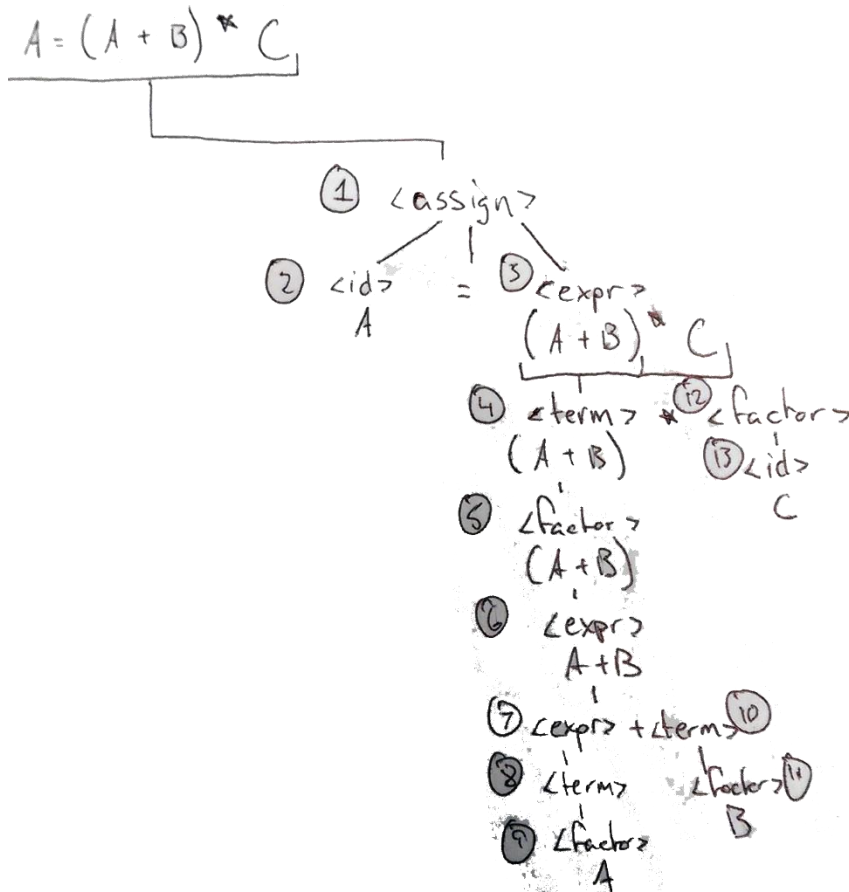 A = (A + B) * C
① <assign>
② <id> = ③ <expr>
A (A + B) * C
④ <term> * ⑫ <factor>
(A + B) ⑬ <id>
C
⑤ <factor>
(A + B)
⑥ <expr>
A + B
⑦ <expr> + <term> ⑩
⑧ <term> <factor> ⑪
B
⑨ <factor>
A